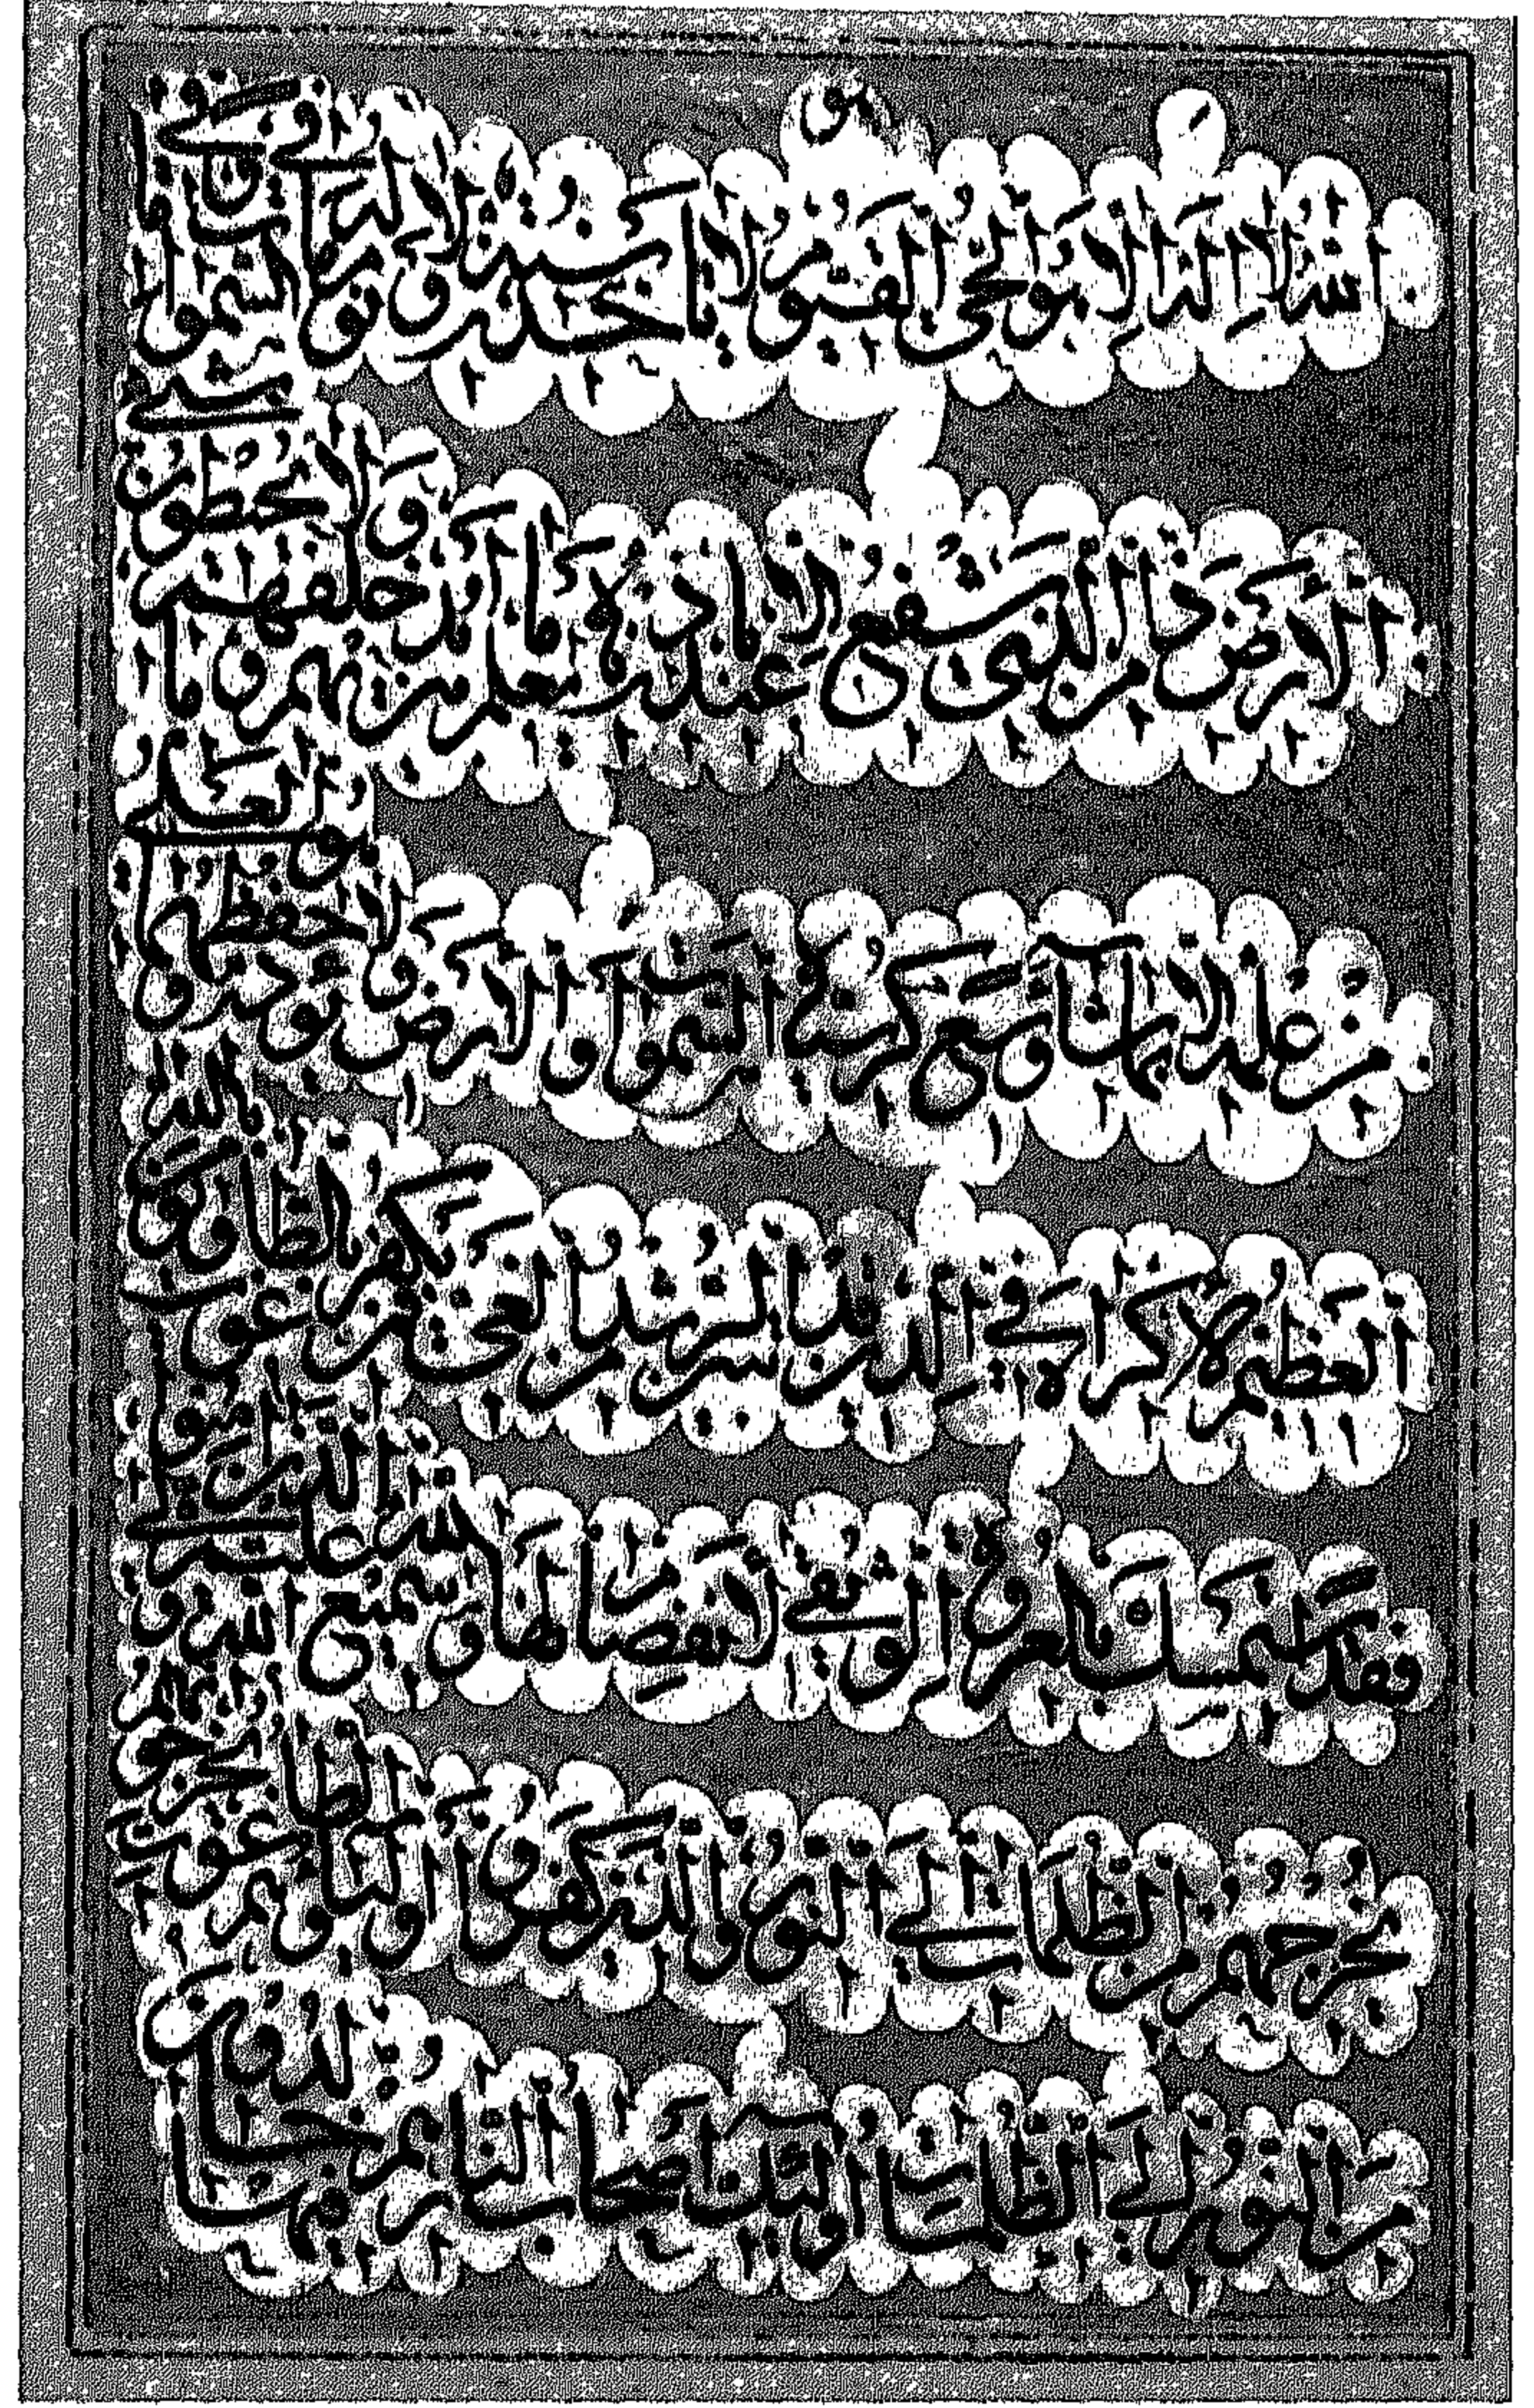 اَللّٰهُ لَا إِلٰهَ إِلَّا هُوَ الْحَيُّ الْقَيُّومُ لَا تَأْخُذُهُ سِنَةٌ وَلَا نَوْمٌ لَهُ مَا فِي السَّمٰوَاتِ وَمَا فِي
الْأَرْضِ مَنْ ذَا الَّذِي يَشْفَعُ عِنْدَهُ إِلَّا بِإِذْنِهِ يَعْلَمُ مَا بَيْنَ أَيْدِيهِمْ وَمَا خَلْفَهُمْ وَلَا يُحِيطُونَ بِشَيْءٍ
مِنْ عِلْمِهِ إِلَّا بِمَا شَاءَ وَسِعَ كُرْسِيُّهُ السَّمٰوَاتِ وَالْأَرْضَ وَلَا يَؤُدُهُ حِفْظُهُمَا وَهُوَ الْعَلِيُّ
الْعَظِيمُ لَا إِكْرَاهَ فِي الدِّينِ قَدْ تَبَيَّنَ الرُّشْدُ مِنَ الْغَيِّ فَمَنْ يَكْفُرْ بِالطَّاغُوتِ وَيُؤْمِنْ بِاللّٰهِ
فَقَدِ اسْتَمْسَكَ بِالْعُرْوَةِ الْوُثْقَى لَا انْفِصَامَ لَهَا وَاللّٰهُ سَمِيعٌ عَلِيمٌ اللّٰهُ وَلِيُّ الَّذِينَ آمَنُوا
يُخْرِجُهُمْ مِنَ الظُّلُمَاتِ إِلَى النُّورِ وَالَّذِينَ كَفَرُوا أَوْلِيَاؤُهُمُ الطَّاغُوتُ يُخْرِجُونَهُمْ
مِنَ النُّورِ إِلَى الظُّلُمَاتِ أُولٰئِكَ أَصْحَابُ النَّارِ هُمْ فِيهَا خَالِدُونَ